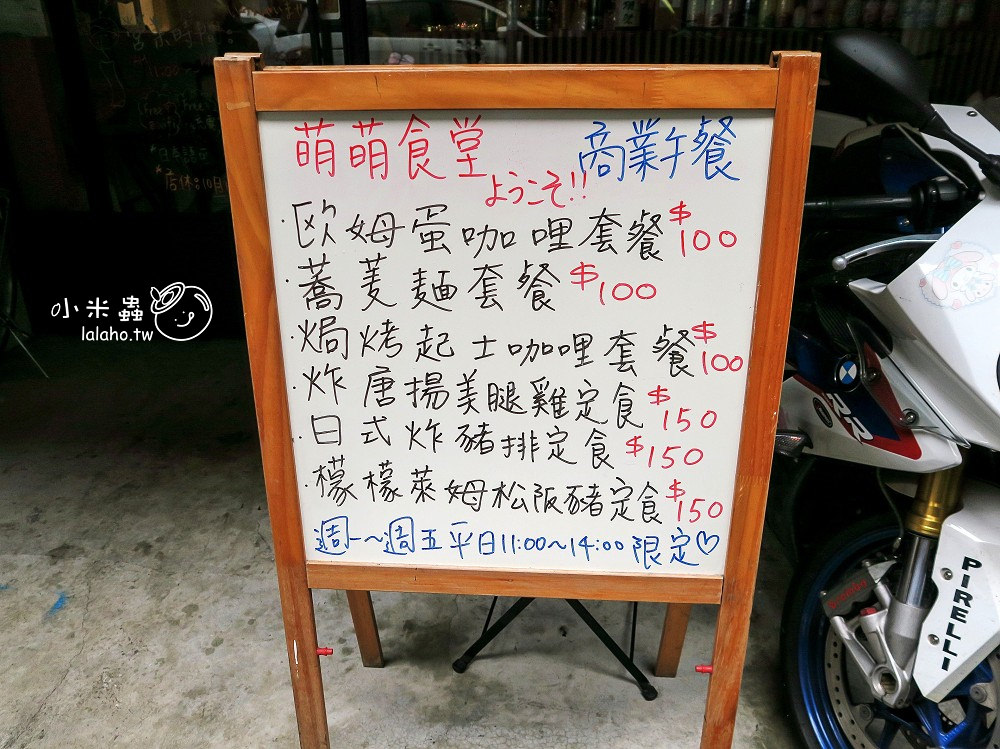 萌萌食堂 商業午餐
ようこそ!!
·欧姆蛋咖哩套餐 $100
·蕎麦麵套餐 $100
·焗烤起士咖哩套餐 $100
·炸唐揚美腿雞定食 $150
·日式炸豬排定食 $150
·檬檬萊姆松阪豬定食 $150
週一~週五平日11:00~14:00限定♡
小米蟲
lalaho.tw
PIRELLI